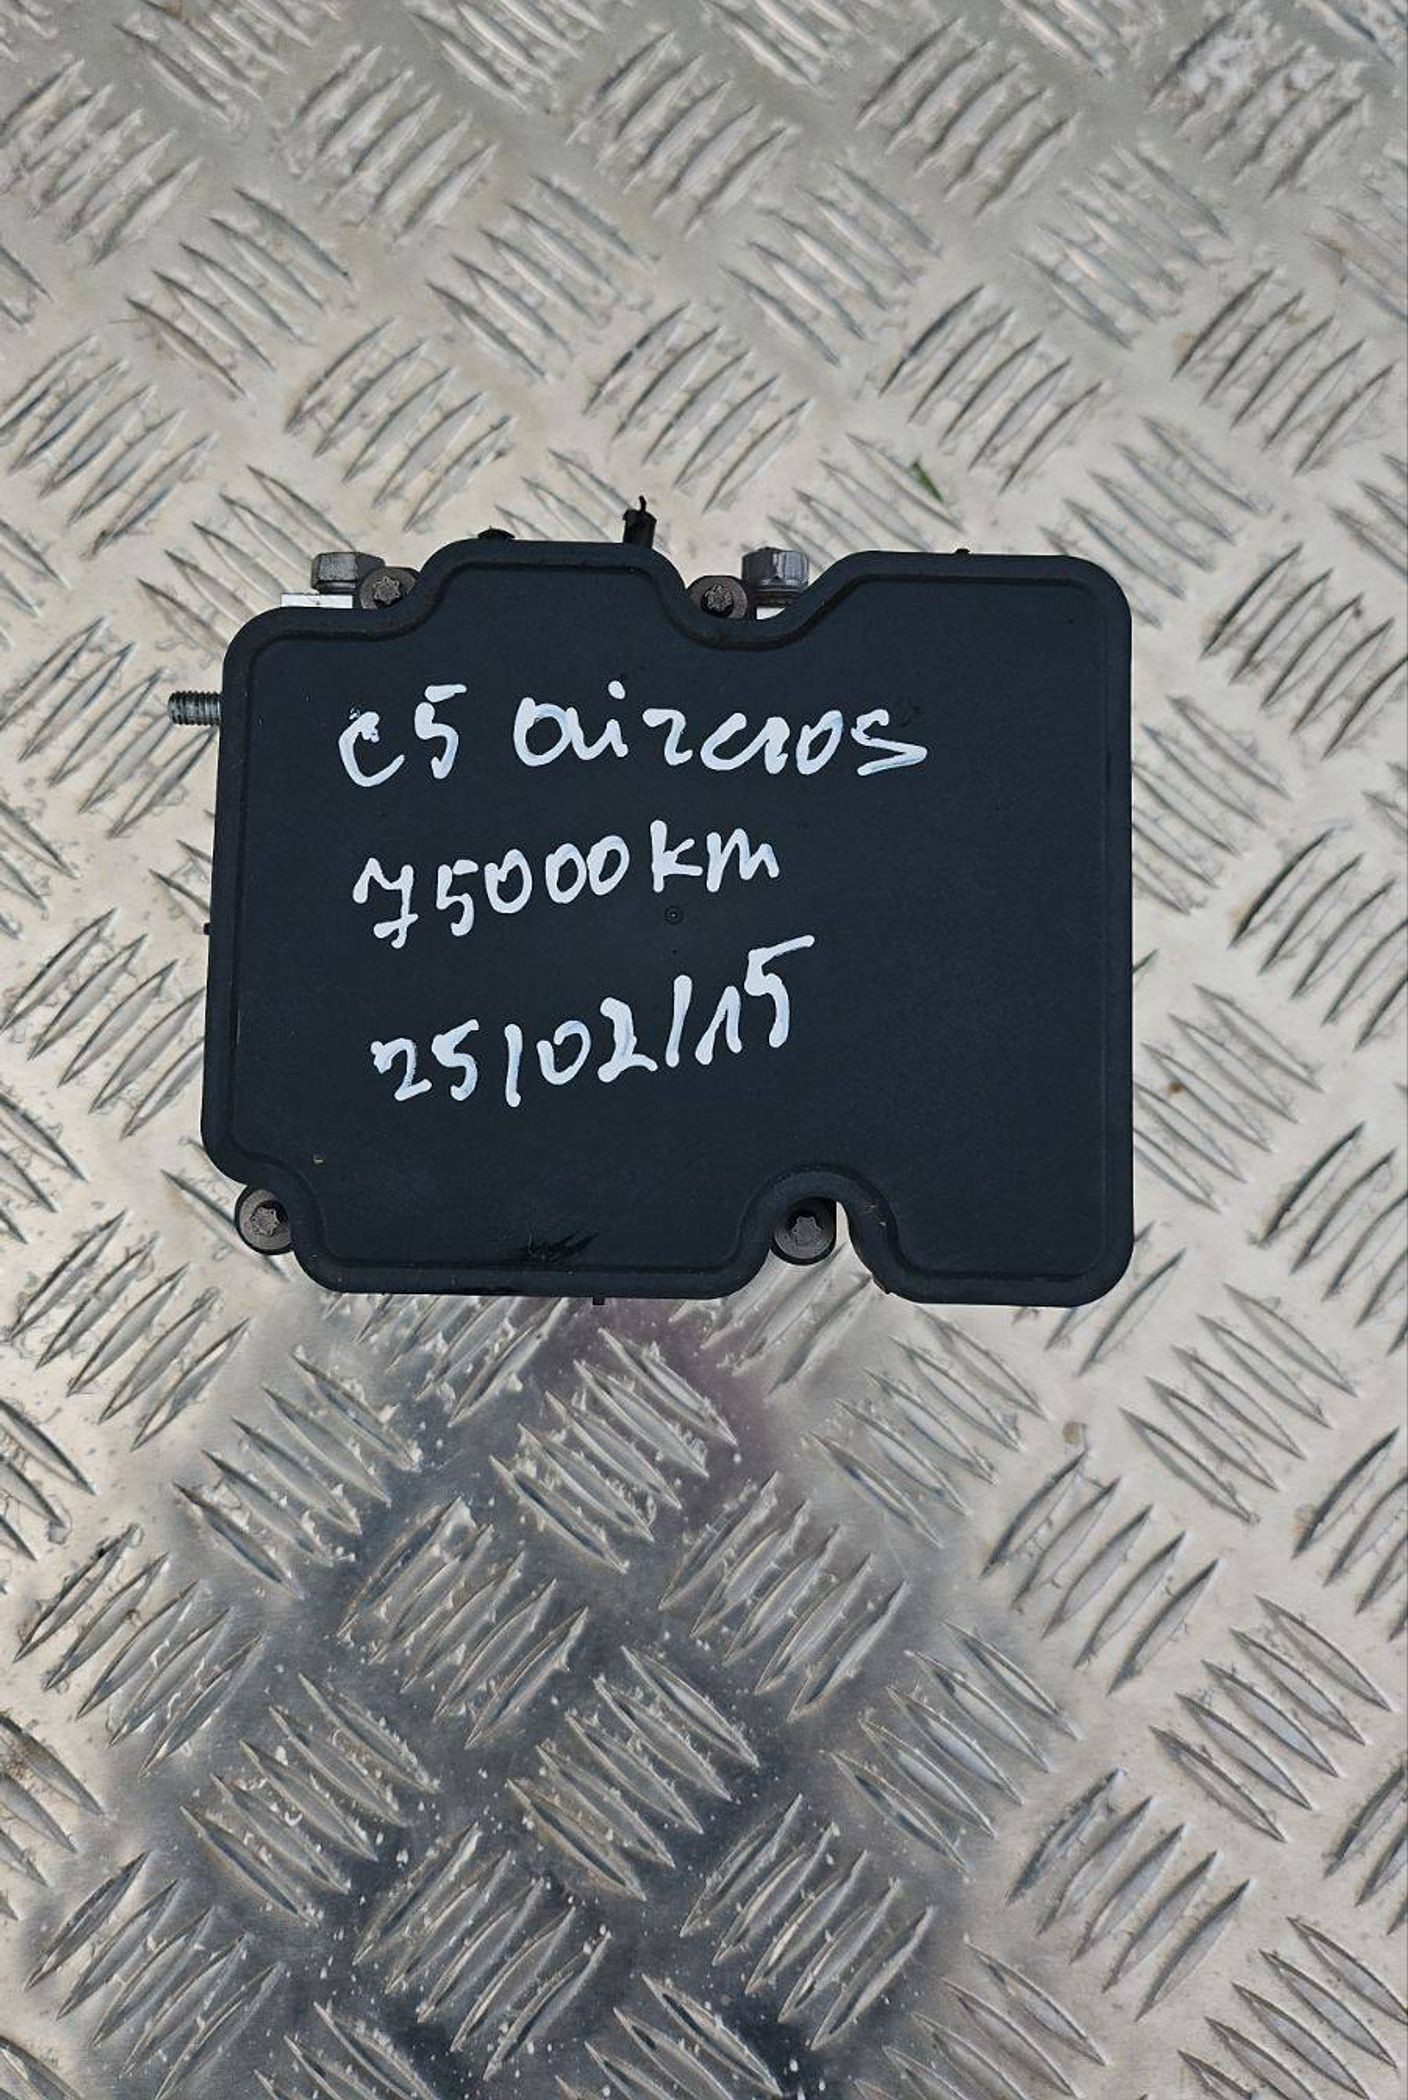 C5 aircros
75000km
25/02/15